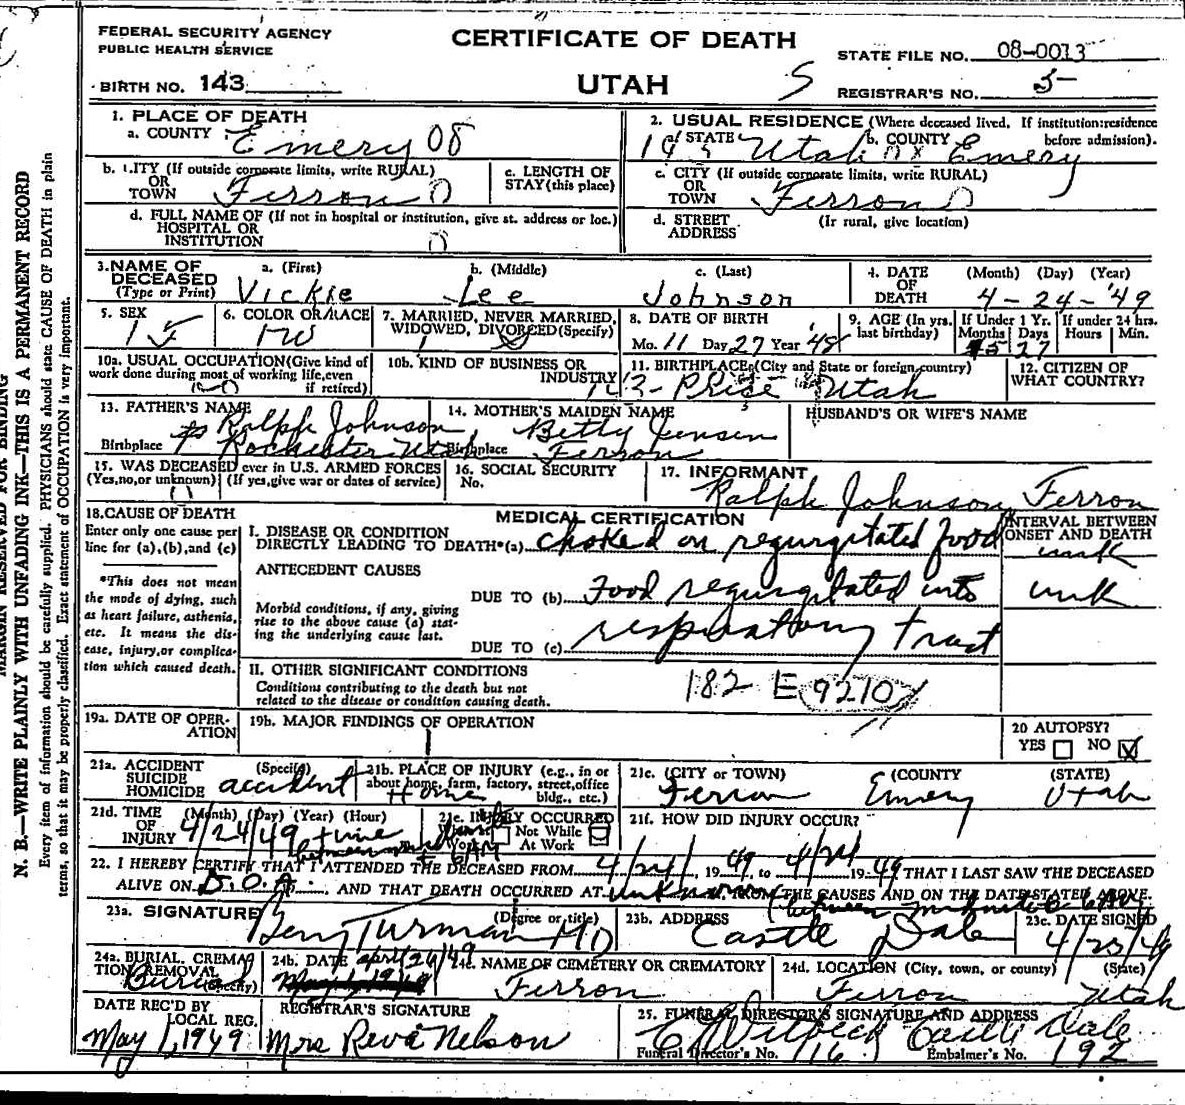 FEDERAL SECURITY AGENCY
PUBLIC HEALTH SERVICE
CERTIFICATE OF DEATH
STATE FILE NO. 08-0013
BIRTH NO. 143
UTAH
S
REGISTRAR'S NO. 5
1. PLACE OF DEATH
a. COUNTY Emery 08
2. USUAL RESIDENCE (Where deceased lived. If institution: residence before admission).
a. STATE Utah b. COUNTY Emery
b. CITY (If outside corporate limits, write RURAL) OR TOWN Ferron 0
c. LENGTH OF STAY (this place)
c. CITY (If outside corporate limits, write RURAL) OR TOWN Ferron 0
d. FULL NAME OF (If not in hospital or institution, give st. address or loc.) HOSPITAL OR INSTITUTION 0
d. STREET ADDRESS (If rural, give location)
3. NAME OF DECEASED (Type or Print)
a. (First) Vickie b. (Middle) Lee c. (Last) Johnson
4. DATE OF DEATH (Month) (Day) (Year) 4-24-'49
5. SEX 1 F
6. COLOR OR RACE 1 W
7. MARRIED, NEVER MARRIED, WIDOWED, DIVORCED (Specify)
8. DATE OF BIRTH Mo. 11 Day 27 Year '48
9. AGE (In yrs. last birthday) If Under 1 Yr. Months Days 27 If under 24 hrs. Hours Min.
10a. USUAL OCCUPATION (Give kind of work done during most of working life, even if retired)
10b. KIND OF BUSINESS OR INDUSTRY
11. BIRTHPLACE (City and State or foreign country) Price Utah
12. CITIZEN OF WHAT COUNTRY?
13. FATHER'S NAME Ralph Johnson
Birthplace Rochester Utah
14. MOTHER'S MAIDEN NAME Betty Jensen
Birthplace Ferron
HUSBAND'S OR WIFE'S NAME
15. WAS DECEASED ever in U.S. ARMED FORCES (Yes, no, or unknown) (If yes, give war or dates of service)
16. SOCIAL SECURITY No.
17. INFORMANT Ralph Johnson Ferron
18. CAUSE OF DEATH
Enter only one cause per line for (a), (b), and (c)
*This does not mean the mode of dying, such as heart failure, asthenia, etc. It means the disease, injury, or complication which caused death.
MEDICAL CERTIFICATION
I. DISEASE OR CONDITION DIRECTLY LEADING TO DEATH*(a) choked on regurgitated food
INTERVAL BETWEEN ONSET AND DEATH unk
ANTECEDENT CAUSES
Morbid conditions, if any, giving rise to the above cause (a) stating the underlying cause last.
DUE TO (b) Food regurgitated into unk
DUE TO (c) respiratory tract
II. OTHER SIGNIFICANT CONDITIONS
Conditions contributing to the death but not related to the disease or condition causing death.
182 E 9210
19a. DATE OF OPERATION
19b. MAJOR FINDINGS OF OPERATION
20 AUTOPSY? YES NO X
21a. ACCIDENT SUICIDE HOMICIDE (Specify) accident
21b. PLACE OF INJURY (e.g., in or about home, farm, factory, street, office bldg., etc.) Home
21c. (CITY or TOWN) Ferron (COUNTY) Emery (STATE) Utah
21d. TIME OF INJURY (Month) (Day) (Year) (Hour) 4/24/49 time between
21e. INJURY OCCURRED Not While At Work
21f. HOW DID INJURY OCCUR?
22. I HEREBY CERTIFY THAT I ATTENDED THE DECEASED FROM 4/24/, 1949, to 4/24 1949 THAT I LAST SAW THE DECEASED
ALIVE ON D.O.A. AND THAT DEATH OCCURRED AT unknown FROM THE CAUSES AND ON THE DATE STATED ABOVE.
23a. SIGNATURE (Degree or title) Turman MD
23b. ADDRESS Castle Dale
23c. DATE SIGNED 4/25/49
24a. BURIAL, CREMATION, REMOVAL (Specify) Burial
24b. DATE april 26/49
24c. NAME OF CEMETERY OR CREMATORY Ferron
24d. LOCATION (City, town, or county) (State) Ferron Utah
DATE REC'D BY LOCAL REG. May 1, 1949
REGISTRAR'S SIGNATURE Mrs Reva Nelson
25. FUNERAL DIRECTOR'S SIGNATURE AND ADDRESS Castle Dale
Funeral Director's No. 116 Embalmer's No. 192
MARGIN RESERVED FOR BINDING
N. B.—WRITE PLAINLY WITH UNFADING INK—THIS IS A PERMANENT RECORD
Every item of information should be carefully supplied. PHYSICIANS should state CAUSE OF DEATH in plain
terms, so that it may be properly classified. Exact statement of OCCUPATION is very important.